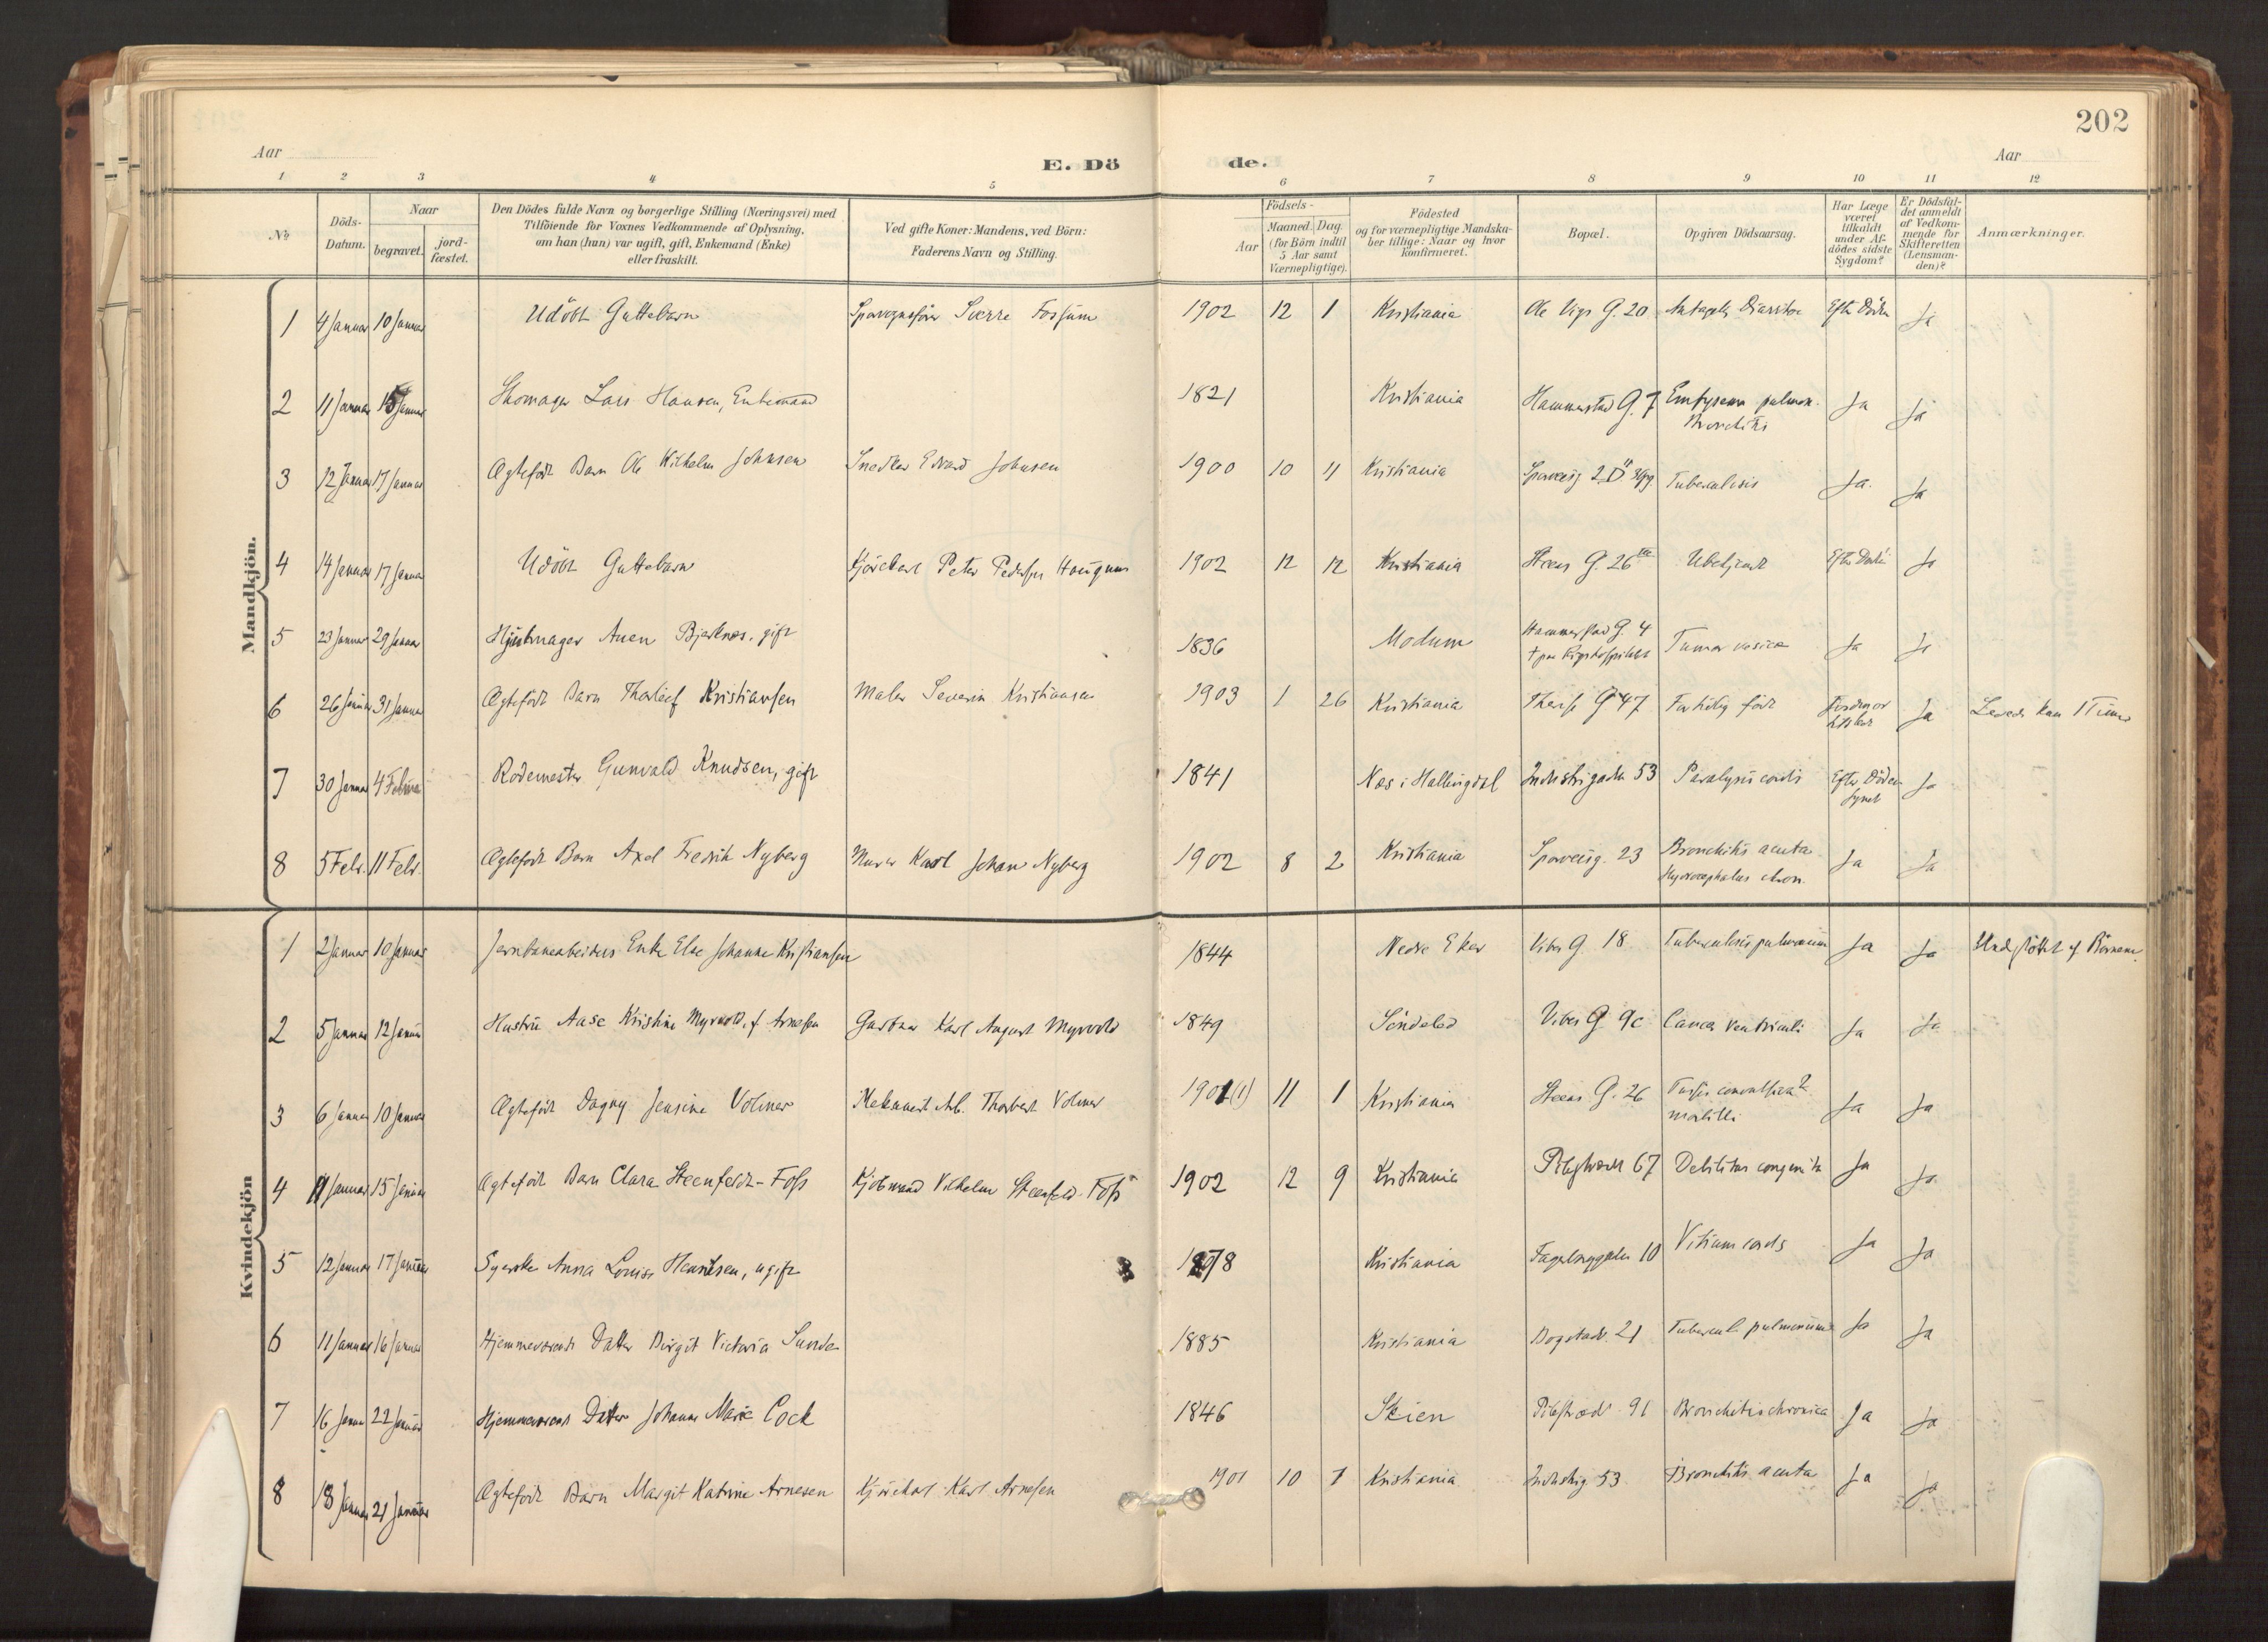 202
Aar
E. Dö
de.
Aar
1 2 3 4 5 6 7 8 9 10 11 12
№
Döds-Datum.
Naar
begravet.
jord-fæstet.
Den Dödes fulde Navn og borgerlige Stilling (Næringsvei) med
Tilföiende for Voxnes Vedkommende af Oplysning,
om han (hun) var ugift, gift, Enkemand (Enke)
eller fraskilt.
Ved gifte Koner: Mandens, ved Börn:
Faderens Navn og Stilling.
Födsels-
Aar
Maaned. Dag.
(for Börn indtil
5 Aar samt
Værnepligtige).
Födested
og for værnepligtige Mandska-
ber tillige: Naar og hvor
konfirmeret.
Bopæl.
Opgiven Dödsaarsag.
Har Læge
været
tilkaldt
under Af-
dödes sidste
Sygdom?
Er Dödsfal-
det anmeldt
af Vedkom-
mende for
Skifteretten
(Lensman-
den)?
Anmærkninger.
Mandkjön.
1 4 Januar 10 Januar Udöbt Guttebarn Sverre Fossum 1902 12 1 Kristiania Ole Vigs G. 20 Efter Döden Ja
2 11 Januar 15 Januar Skomager Lars Hansen, Enkemand 1821 Kristiania Hammerstad G. 7 Emfysema pulmon. Ja Ja
Bronchitis
3 12 Januar 17 Januar Ægtefödt Barn Ole Wilhelm Johnsen Snedker Edvard Johnsen 1900 10 11 Kristiania Sporveisg. 2 Tuberculosis Ja. Ja
4 14 Januar 17 Januar Udöbt Guttebarn Kjörekarl Peter Pedersen Haugum 1902 12 12 Kristiania Steens G. 26 Ubekjendt Efter Döden Ja
5 23 Januar 29 Januar Hjulmager Auen Bjerknes, gift 1836 Modum Hammerstad G. 4 Tumor vesica Ja Ja
† paa Rigshospitalet
6 26 Januar 31 Januar Ægtefödt Barn Thorleif Kristiansen Maler Severin Kristiansen 1903 1 26 Kristiania G 47 For tidlig födt Jordmor Ja Levede kun 1 Time
7 30 Januar 4 Februar Rodemester Gunvald Knudsen, gift 1841 Næs i Hallingdal Industrigaden 53 Paralysis cordis Efter Döden Ja
synet
8 5 Febr. 11 Febr. Ægtefödt Barn Axel Fredrik Nyberg Murer Karl Johan Nyberg 1902 8 2 Kristiania Sporveisg. 23 Bronchitis acuta Ja Ja
Hydrocephalus chron.
Kvindekjön
1 2 Januar 10 Januar Jernbanearbeiders Enke Else Johanne Kristiansen 1844 Nedre Eker Vibes G. 18 Tuberculosis pulmonum Ja Ja Understöttet af Börnene.
2 5 Januar 12 Januar Hustru Aase Kristine Myrvold, f. Arnesen Gartner Karl August Myrvold 1849 Söndeled Vibes G. 9c Cancer ventriculi Ja Ja
3 6 Januar 10 Januar Ægtefödt Dagny Jensine Volmer Mekanisk Arb. Thorbert Volmer 1901 (1) 11 1 Kristiania Steens G. 26 Tussis convulsiva? Ja Ja
morbilli
4 11 Januar 15 Januar Ægtefödt Barn Clara Steenfeldt-Foss Kjöbmand Vilhelm Steenfeld-Foss 1902 12 9 Kristiania Pilestrædet 67 Debilitas congenita Ja Ja
5 12 Januar 17 Januar Syerske Anna Louise Henriksen, ugift 1878 Kristiania Fagerborggaden 10 Vitium cordis Ja Ja
6 11 Januar 16 Januar Hjemmeværende Datter Birgit Victoria Sunde 1885 Kristiania Bogstadv. 21 Tubercul. pulmonum Ja Ja
7 16 Januar 22 Januar Hjemmeværende Datter Johanne Marie Cock 1846 Skien Pilestræde 91 Bronchitis chronica Ja Ja
8 18 Januar 21 Januar Ægtefödt Barn Margit Katrine Arnesen Kjörekarl Karl Arnesen 1901 10 7 Kristiania Industrig. 53 Bronchitis acuta Ja Ja